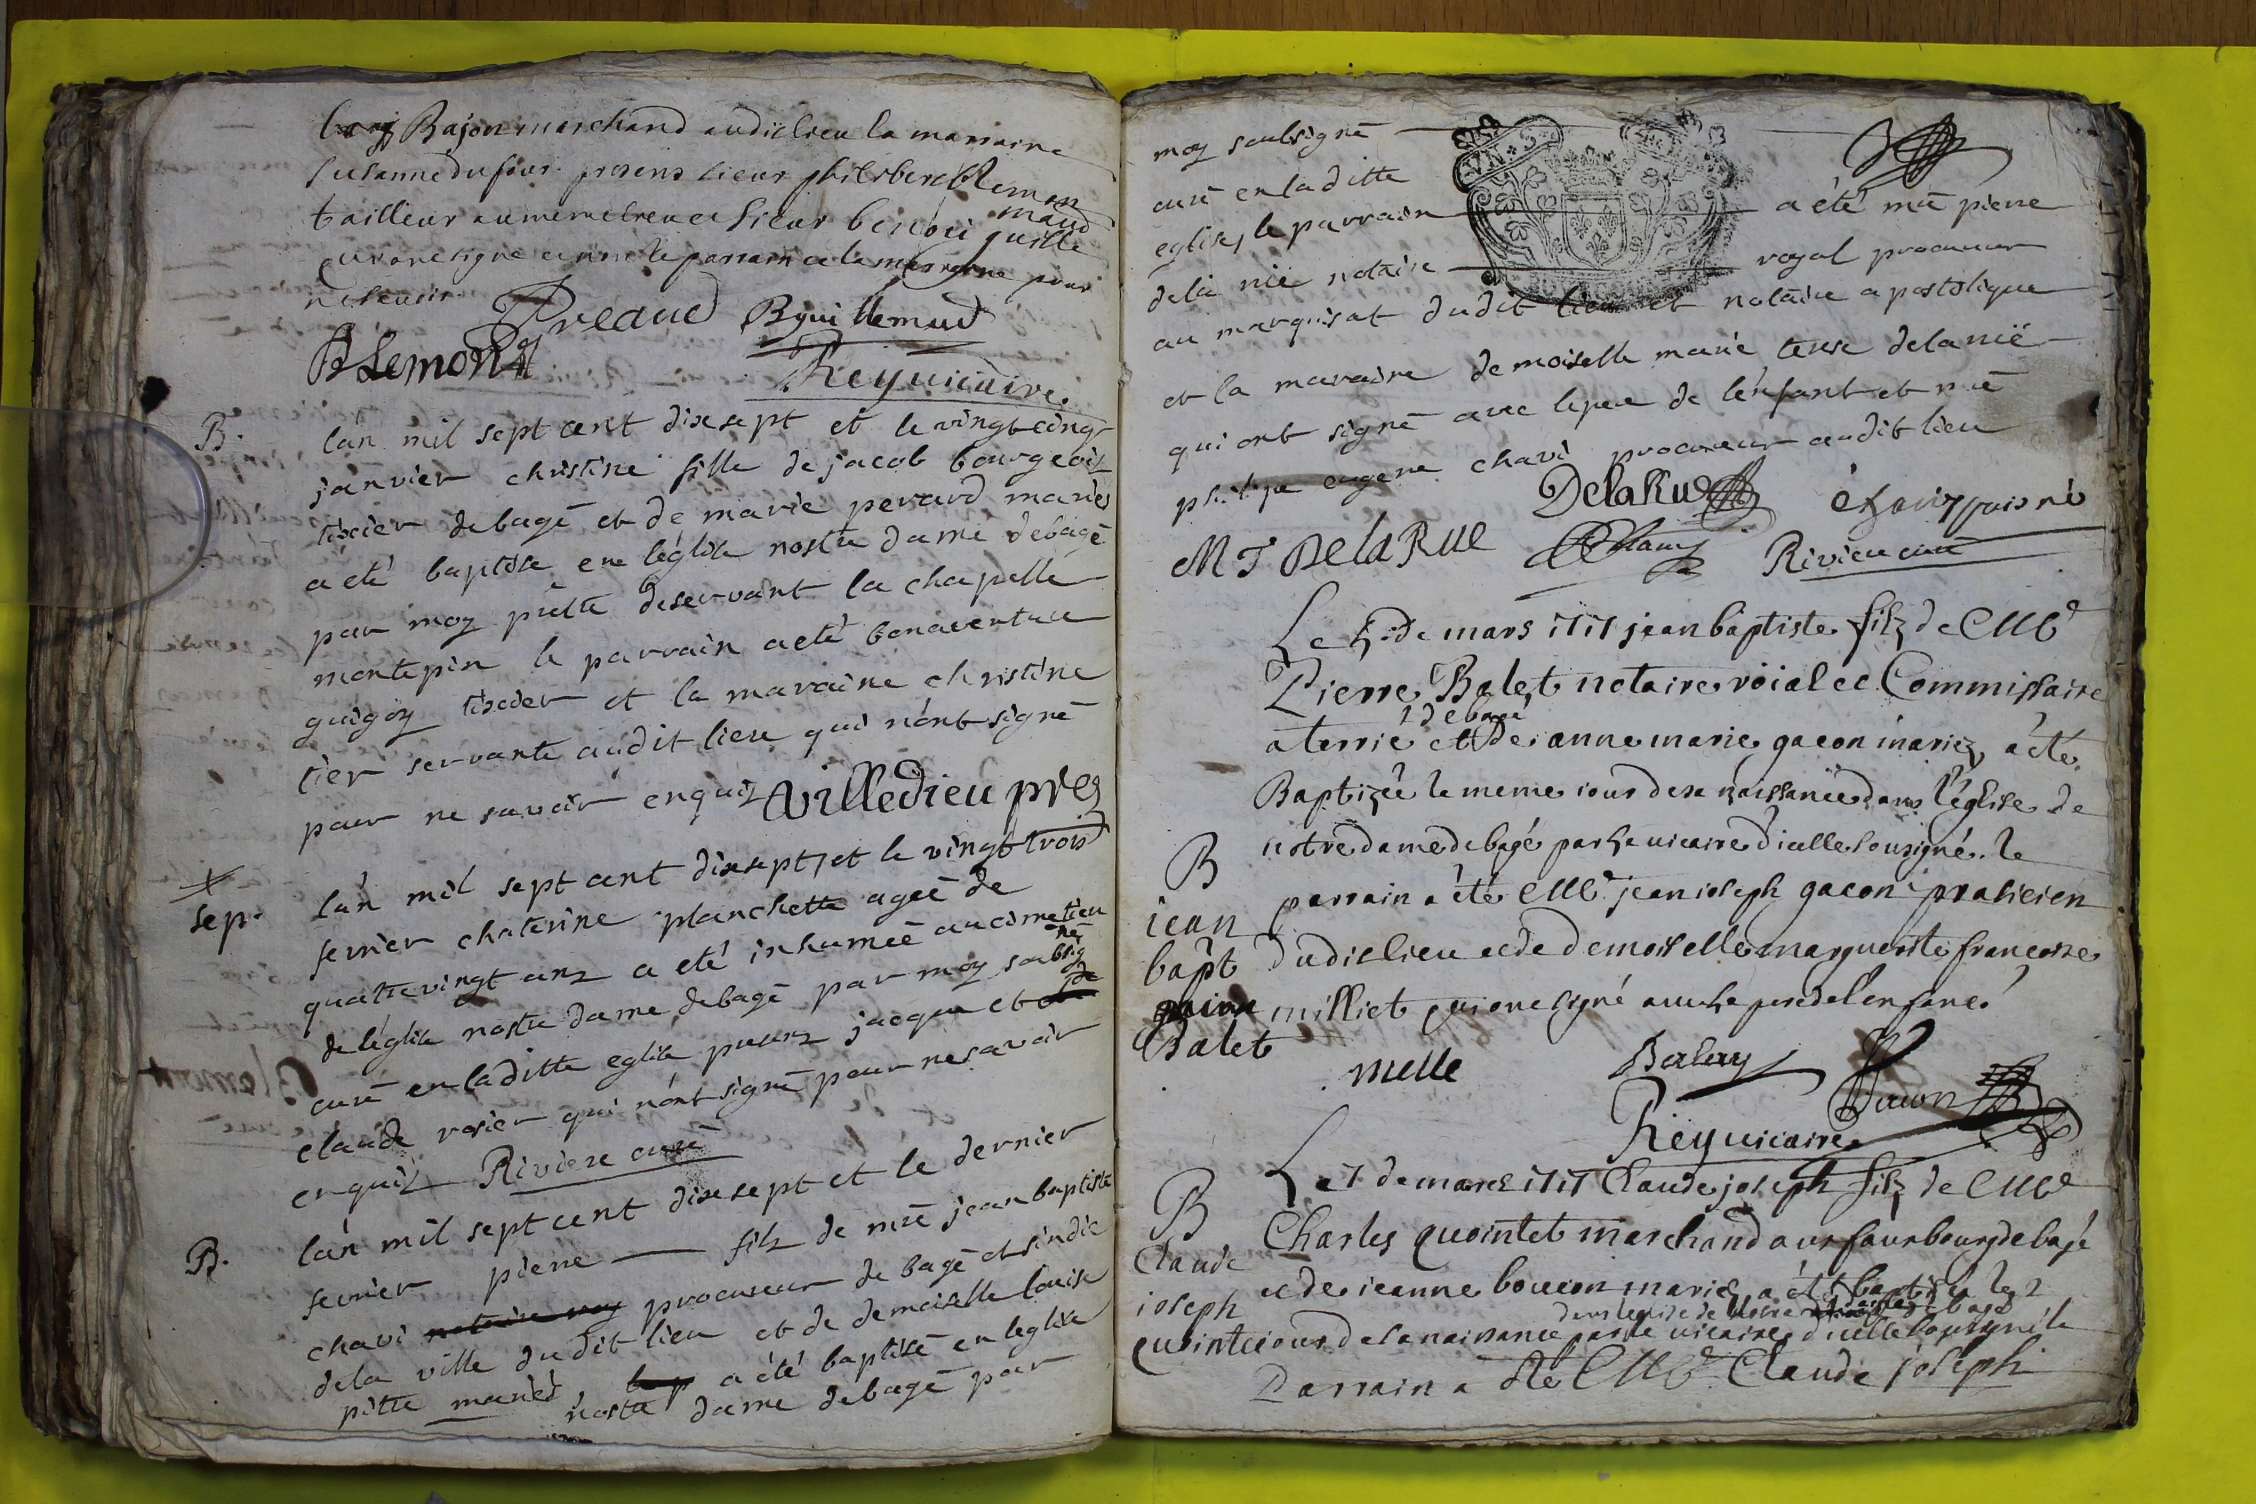 Bajon marchand audit lieu la marraine
susanne dufour presens sieur philibert Blemon
tailleur au meme lieu et sieur benoit guille
maud
qui ont signe et non le parrain et la marraine pour
ne sçavoir
Preaud Bguillemaud
BLemont
Rey vicaire
B. lan mil sept cent dixsept et le vingt cinq
janvier christine fille de jacob bourgeois
tixier de bagé et de marie perard mariés
a eté baptisée en léglise nostre dame de bagé
par moy prêtre deservant la chapelle
montepin le parrain a eté bonaventure
guigoy tixier et la maraine christine
tier servante audit lieu qui nont signé
pour ne savoir enquis Villedieu pre
Sep. lan mil sept cent dixsept et le vingt trois
fevrier chaterine planchette ageé de
quattrevingt ans a eté inhumeé au cimetiere
de léglise nostre dame de bagé par moy soubsig
né
curé en laditte eglise presens jacque et de
claude rosier qui nont signé pour ne savoir
enquis Riviere curé
B. lan mil sept cent dixsept et le dernier
fevrier pierre fils de mre jean baptiste
chavi notaire roy procureur de bagé et sindic
dela ville dudit lieu et de demoiselle louise
pitte mariés, a été baptisé en leglise
nostre dame de bagé par
moy soubsigné
curé en laditte
eglise, le parrain a été mre pierre
dela rüe notaire royal procureur
au marquisat dudit lieu et notaire apostolique
et la maraine demoiselle marie terese delarüe
qui ont signé avec le pere de lenfant et mre
philipe eugene chavi procureur audit lieu
DelaRue
chavi puisné
M T DelaRue Chavi Riviere curé
Le 5 de mars 1717 jean baptiste filz de Me
Pierre Balet notaire roial et Commissaire
de bagé
a terrie et de anne marie gacon mariez, a été
Baptizée le meme iour de sa naissance dans l'église de
notre dame de bagé par le vicaire d'icelle sousigné. le
B
jean
bapt
Balet
parrain a été Me jean ioseph gacon praticien
dudit lieu et de demoiselle marguerite francoise
milliet qui ont signé avec le pere de l'enfant
melle Balay Gacon
Rey vicaire
B
Claude
ioseph
quointet
Le 7 de mars 1717 Claude joseph filz de Me
Charles quointet marchand aux faurbourg de bagé
et de jeanne boucon mariez, a été baptizé le 2
dans leglise de Notre dame de bagé
iour de sa naissance par le vicaire d'icelle sousigné le
Parrain a été Me Claude joseph